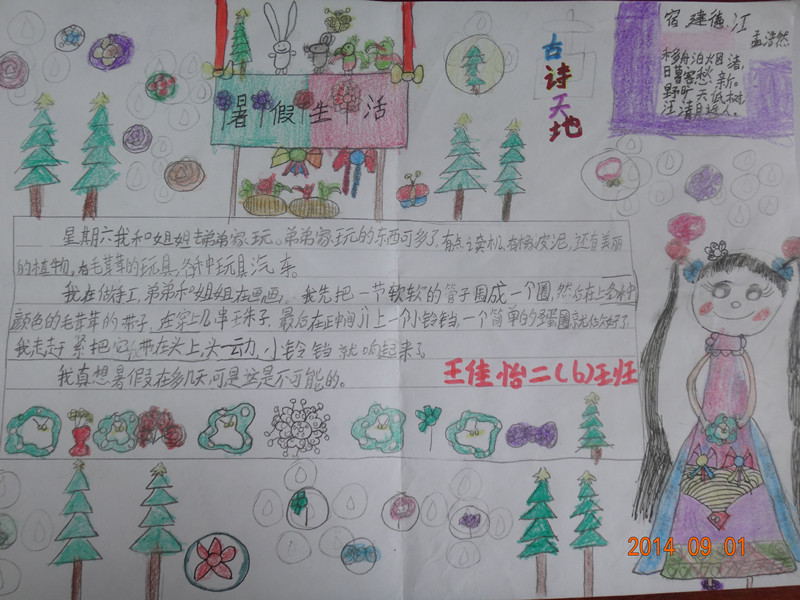 暑假生活
古诗天地
宿建德江
孟浩然
移舟泊烟渚,
日暮客愁新。
野旷天低树,
江清月近人。
星期六我和姐姐去弟弟家玩。弟弟家玩的东西可多了,有点读机,有橡皮泥,还有美丽
的植物,有毛茸茸的玩具,各种玩具汽车。
我在做手工,弟弟和姐姐在画画。我先把一节软软的管子围成一个圈,然后在上各种
颜色的毛茸茸的带子,在穿上几串珠子,最后在正中间
上一个小铃铛,一个简单的
圈就做好了
我赶紧把它带在头上,头一动,小铃铛就响起来了。
我真想暑假在多几天,可是这是不可能的。
王佳怡二(6)王班
2014 09 01